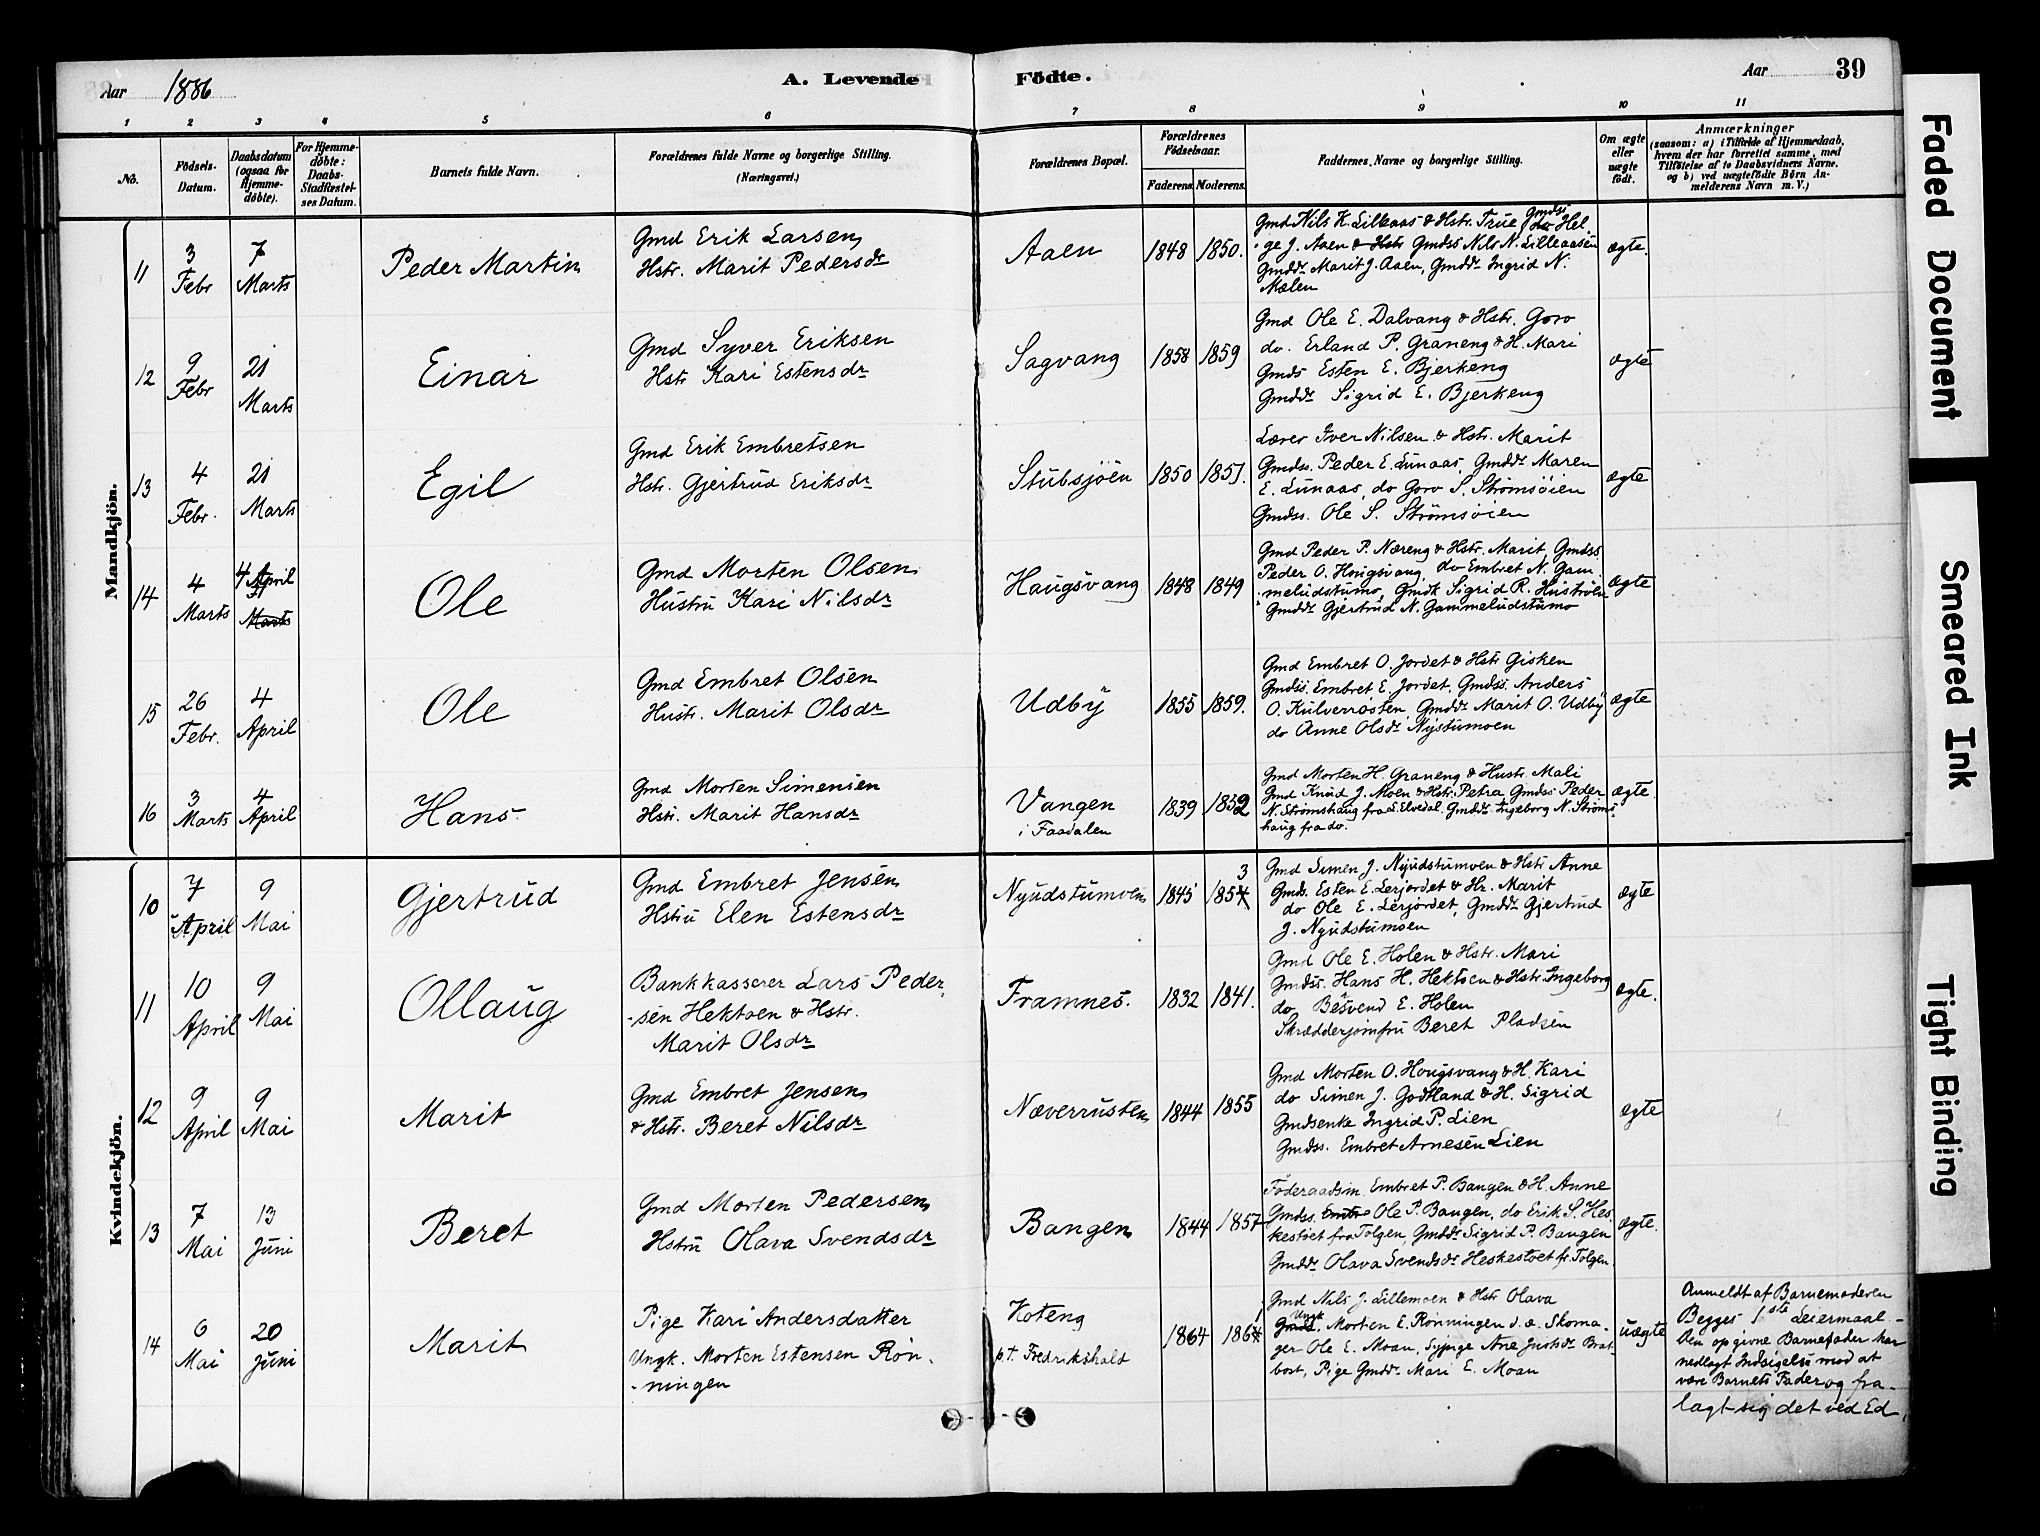 Aar 1886
A. Levende Födte.
Aar 39
1 2 3 4 5 6 7 8 9 10 11
No.
Födsels-Datum.
Daabsdatum (ogsaa for Hjemme-döbte).
For Hjemme-döbte: Daabs-Stadfæstel-ses Datum.
Barnets fulde Navn.
Forældrenes fulde Navne og borgerlige Stilling.
(Næringsvei.)
Forældrenes Bopæl.
Forældrenes Födselsaar.
Faderens. Moderens.
Faddernes, Navne og borgerlig Stilling.
Om ægte eller uægte födt.
Anmærkninger
(saasom: a) i Tilfælde af Hjemmedaab,
hvem der har forrettet samme, med
Tilföielse af to Daabsvidners Navne,
og b) ved uægtefödte Börn An-
melderens Navn m. V.)
Mandkjön.
11
3 Febr
7 Marts
Peder Martin
Gmd Erik Larsen
Hstr. Marit Pedersdr
Aaen
1848 1850.
Gmd Nils K. Lilleaas & Hstr. True, Gmdss Hel
ge J. Aaen & Hstr Gmdss Nils N. Lilleaasen
Gmddr Marit J. Aaen, Gmddr Ingrid N.
Mælen
ægte.
12
9 Febr
21 Marts
Einar
Gmd Syver Eriksen
Hstr Kari Estensdr
Sagvang
1858 1859
Gmd Ole E. Dalvang & Hstr. Goro
do. Erland P. Graneng & H. Mari
Gmds Esten E. Bjerkeng
Gmddr Sigrid E. Bjerkeng
ægte
13
4 Febr.
21 Marts
Egil
Gmd Erik Embretsen
Hstr. Gjertrud Eriksdr
Stubsjöen
1850 1851.
Lærer Iver Nilsen & Hstr. Marit
Gmdss. Peder E. Lunaas, Gmddr Maren
E. Lunaas, do Goro S. Strømsöien
Gmdss. Ole S. Strömsöien
ægte
14
4 Marts
4 April
Marts
Ole
Gmd Morten Olsen
Hustru Kari Nilsdr
Haugsvang
1848 1849
Gmd Peder P. Næreng & Hstr. Marit, Gmdss
Peder O. Hougsvang, do Embret N. Gam
meludstumo, Gmdk Sigrid R. Huströlen
Gmddr Gjertrud N. Gammeludstumo
ægte
15
26 Febr.
4 April
Ole
Gmd Embret Olsen
Hustr. Marit Olsdr
Udby
1855 1859.
Gmd Embret O. Jordet & Hstr Gisken
Gmdss. Embret E. Jordet, Gmdss. Anders
O. Kulverrosten, Gmddr Marit O. Udby
do Anne Olsdr Nystumoen
ægte
16
3 Marts
4 April
Hans
Gmd Morten Simensen
Hstr. Marit Hansdr
Vangen
i Faadalen
1839 1852
Gmd Morten H. Graneng & Hustr. Mali
Gmd Knud J. Moen & Hstr. Petra Gmdss Peder
N. Strömshaug fra Elvedal. Gmddr Ingeborg N. Ströms
haug fra do.
ægte.
Kvindekjön.
10
7 April
9 Mai
Gjertrud
Gmd Embret Jensen
Hstru Elen Estensdr
Nyudstumoen
1845 1854 3
Gmd Simen J. Nyudstumoen & Hstr Anne
Gmds. Esten E. Lerjordet & Hr. Marit
do Ole E. Lerjordet, Gmddr Gjertrud
J. Nyudstumoen
ægte
11
10 April
9 Mai
Ollaug
Bankkasserer Lars Peder
-sen Hektoen & Hstr.
Marit Olsdr
Framnes.
1832 1841.
Gmd Ole E. Holen & Hstr. Mari
Gmdss. Hans H. Hektoen & Hstr. Ingeborg
do Besvend E. Holen
Skrædderjomfru Beret Pladsen
ægte.
12
9 April
9 Mai
Marit
Gmd Embret Jensen
& Hstr. Beret Nilsdr
Næverrusten
1844 1855
Gmd Morten O. Hougsvang & H. Kari
do Simen J. Godtland & H. Sigrid
Gmdsenke Ingrid P. Lien
Gmdss. Embret Arnesen Lien
ægte
13
7 Mai
13 Juni
Beret
Gmd Morten Pedersen
Hstru Olava Svendsdr
Bangen
1844 1857
Föderaadsm. Embret P. Bangen & H. Anne
Gmdss. Ole P. Bangen, do Erik S. Hes
kestöet fra Tolgen, Gmddr Sigrid P. Bangen
Gmddr Olava Svendsdr Heskestöet fr. Tolgen.
ægte.
14
6 Mai
20 Juni
Marit
Pige Kari Andersdatter
Ungk. Morten Estensen Rön-
-ningen
Koteng
p.t. Fredrikshald
1864 1864
Gmd Nils J. Lillemoen & Hstr Olava
Ungk. Morten E. Rönningen d. æ. Skoma
ger Ole E. Moan, Sypige Ane Justsdr Brat
bost, Pige Gmddr Mari E. Moan
uægte
Anmeldt af Barnemoderen
Begges 1ste Leiermaal.-
Den opgivne Barnefader har
nedlagt Indsigelse mod at
være Barnets Fader og fra-
lagt sig det ved Ed.
Faded Document
Smeared Ink
Tight Binding